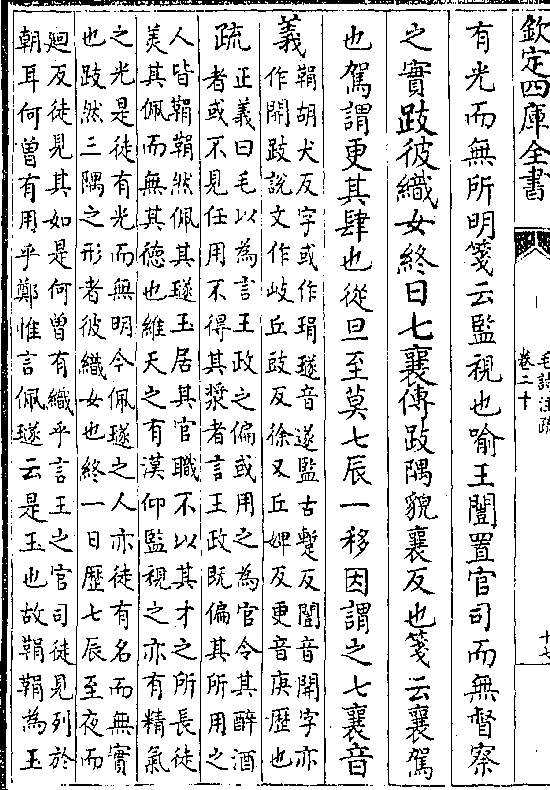 欽定四庫全書
毛詩注疏
卷二十
十七
有光而無所明箋云監視也喻王闓置官司而無督察
之實跂彼織女終日七襄傳跂隅貌襄反也箋云襄駕
也駕謂更其肆也從旦至莫七辰一移因謂之七襄音
義鞙胡犬反字或作琄璲音遂監古蹔反闓音開字亦
作開跂說文作𡵆丘豉反徐又丘婢反更音庚歷也
疏正義曰毛以為言王政之偏或用之為官令其醉酒
者或不見任用不得其漿者言王政既偏其所用之
人皆鞙鞙然佩其璲玉居其官職不以其才之所長徒
美其佩而無其德也維天之有漢仰監視之亦有精氣
之光是徒有光而無明今佩璲之人亦徒有名而無實
也跂然三隅之形者彼織女也終一日歷七辰至夜而
廻反徒見其如是何曾有織乎言王之官司徒見列於
朝耳何曾有用乎鄭惟言佩璲云是玉也故鞙鞙為玉